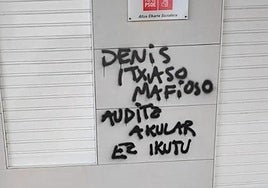 PSOE
Altza Elkarte Sozialista
DENIS
ITXASO
MAFIOSO
AUDITZ
AKULAR
EZ IKUTU